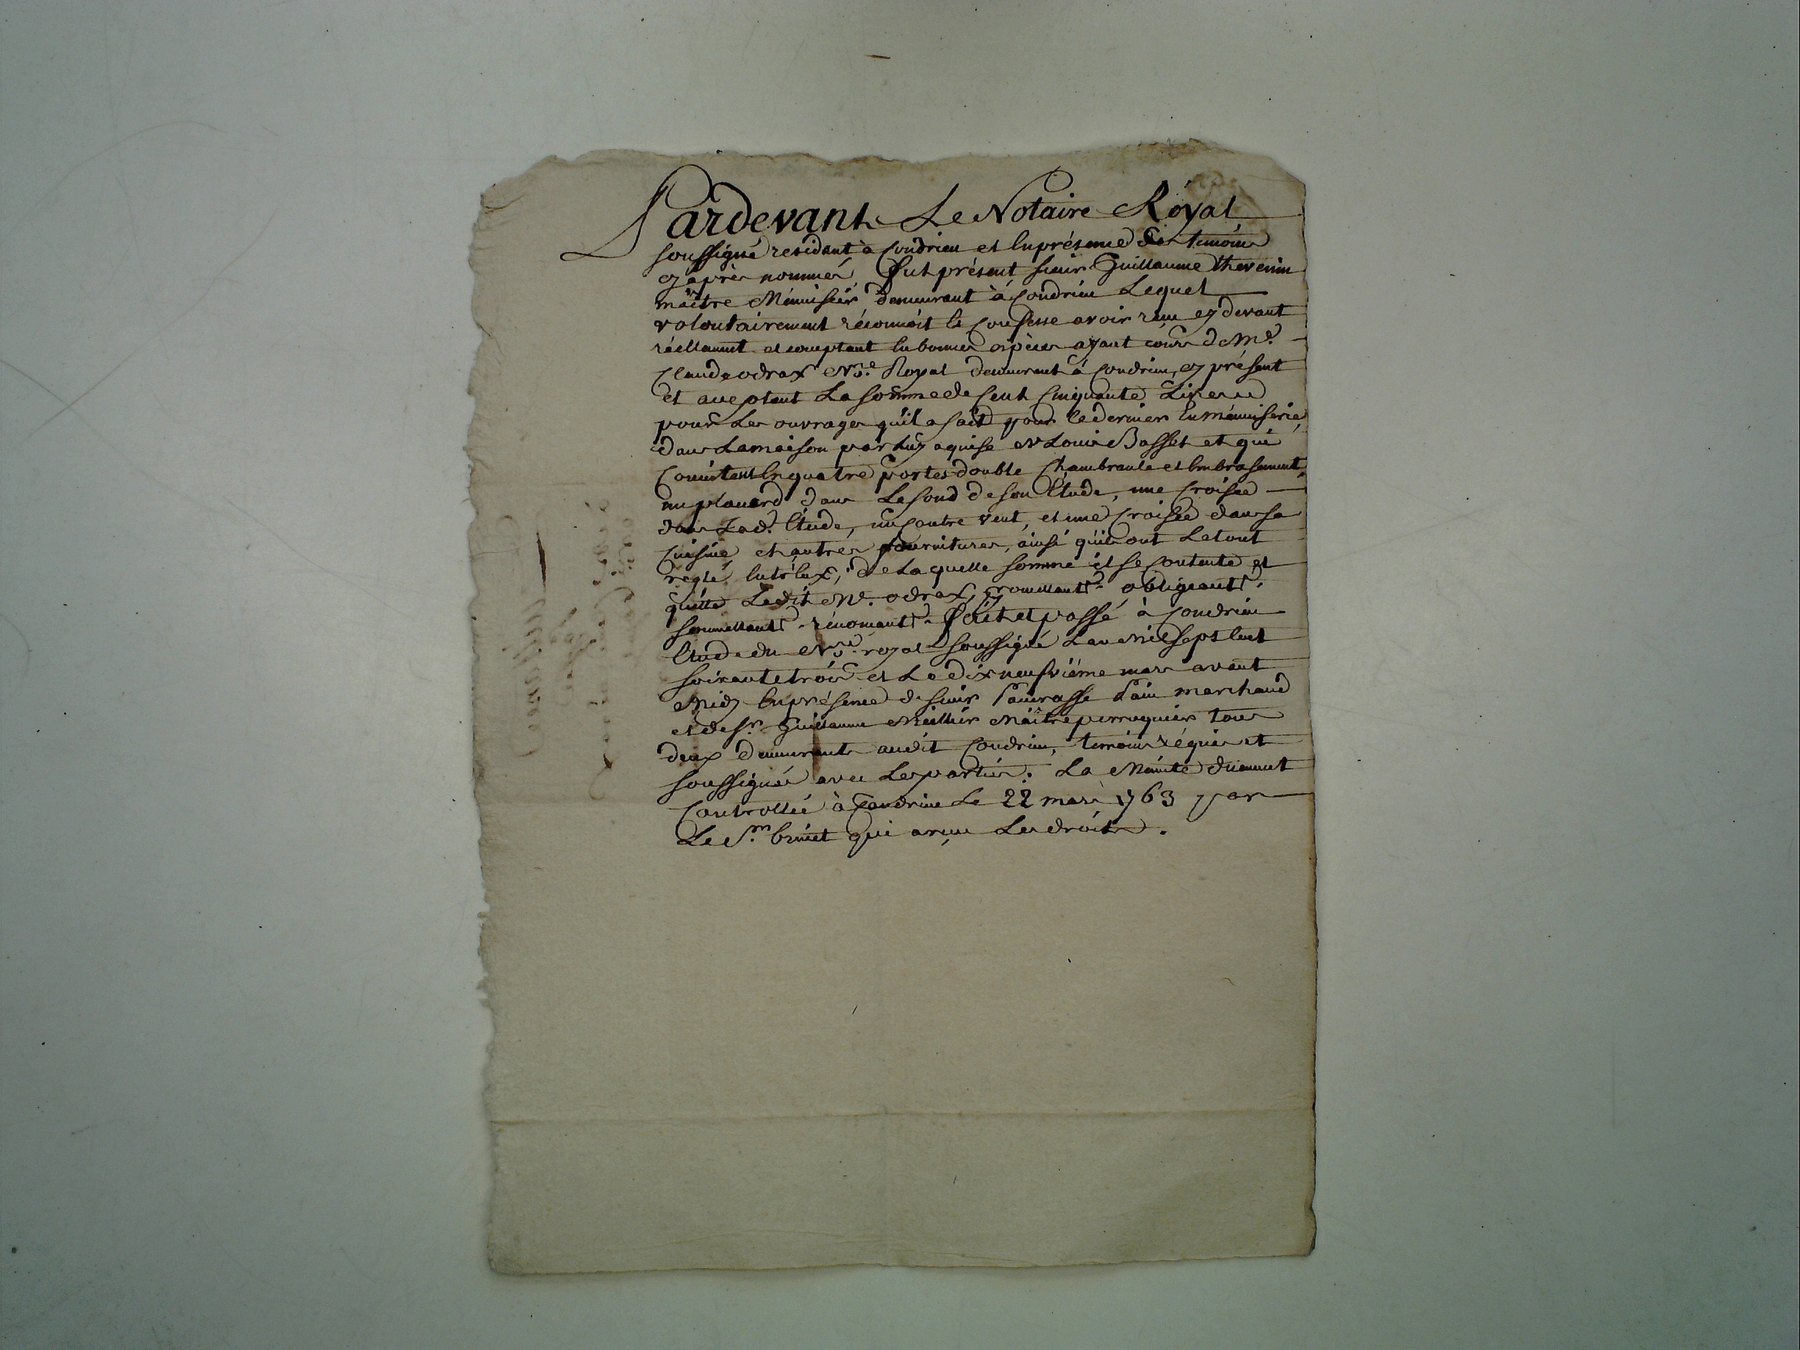 Pardevant Le Notaire Royal
soussigné residant à Condrieu et Enprésence des temoins
cy après nommés fut présent sieur Guillaume thevenin
maître Ménuisier demeurant à Condrieu Lequel
volontairement réconnoit le confesse avoir reçu cy devant
réellement et comptant En bonnes espèces ayant cours de Me.
Claude odrax Nore. Royal demeurant à Condrieu, cy présent
et acceptant La somme de Cent Cinquante Livres
pour Les ouvrages qu'il a fait pour le dernier En ménuiserie
dans La maison par Luy aquise Louis Basset et qui
Consistent En quatre portes double Chambranle et Embrasement,
un placard dans Le fond de son Etude, une Croisée
dans Lad. Etude, un contre vent, et une Croisée dans sa
Cuisine et autres fournitures, ainsi qu'ils ont Le tout
reglé Entr'Eux, de Laquelle somme il se contente et
quitte Ledit Me. odrax, promettant. obligeant.
soumettant. rénonçant. fait et passé à Condrieu
Etude du Nore. royal soussigné L'an Mil sept Cent
soixante trois et Le dix neufvième mars avant
Midy Enprésence de sieur Pain marchand
et de sr. Guillaume Meillier Maître perruquier tous
deux demeurants audit Condrieu, temoins réquis et
soussignés avec Les parties. La Minute düement
Controllée à Condrieu Le 22 mars 1763 par
Le Sr. qui a reçu Les droits.